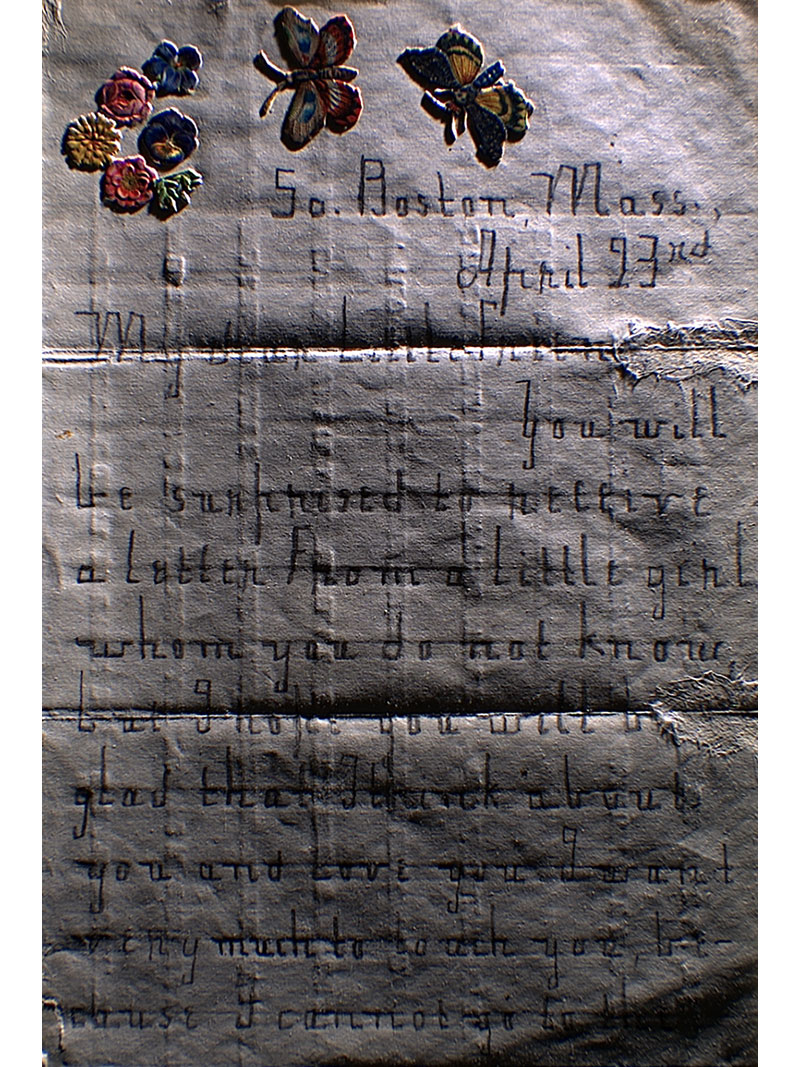 So. Boston, Mass.,
April 23rd
My dear Little Friend
You will
be surprised to receive
a letter from a little girl
whom you do not know,
but I hope you will be
glad that I think about
you and love you. I want
very much to touch you, be-
cause I cannot go to